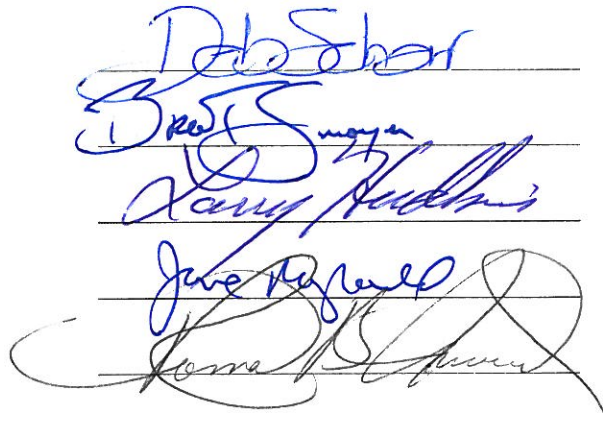 Deb Schorr
Larry Hudkins
Jane Raybould
Roma B Amundson